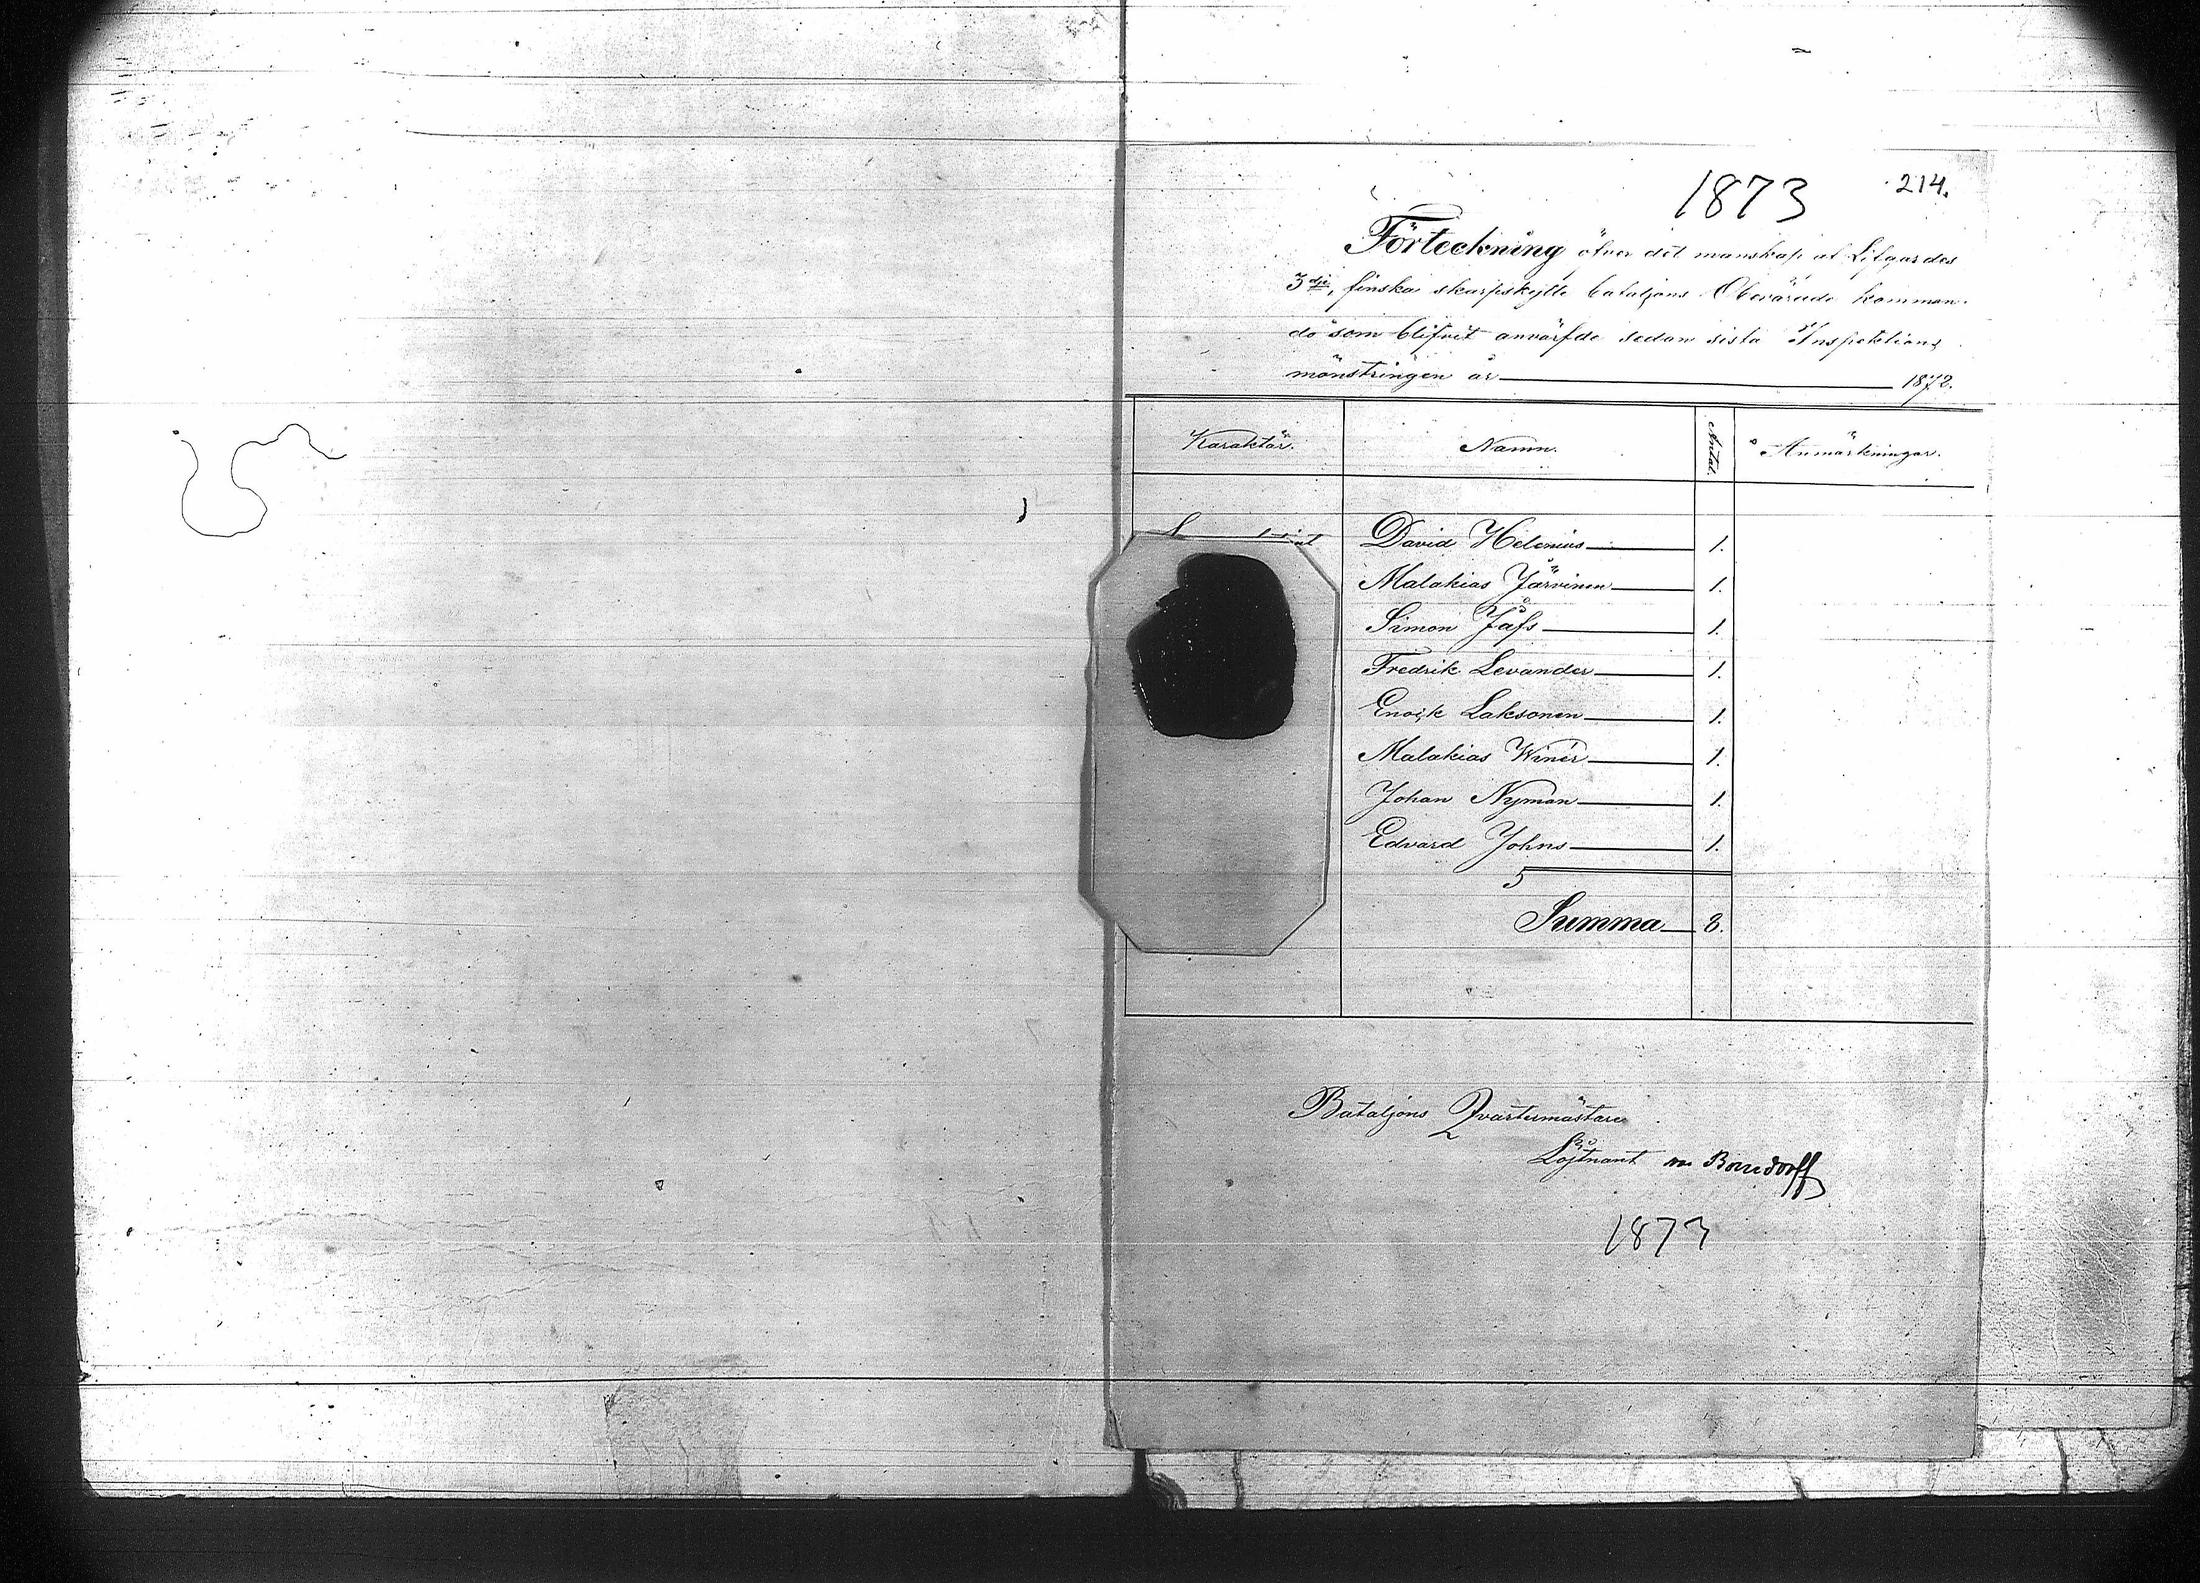 1873 214.
Förteckning öfver det manskap af Lifgardes
3dje, finska skarpskytte bataljons Obevärade komman-
do som blifvit anvärfde sedan sista Inspektions
mönstringen år 1872.
Karaktär. Namn. Antal. Anmärkningar.
David Helenius 1.
Malakias Järvinen 1.
Simon Jåfs 1.
Fredrik Levander 1.
Enock Laksonen 1.
Malakias Winér 1.
Johan Nyman 1.
Edvard Johns 1.
5
Summa 8.
Bataljons Qvartermästare
Löjtnant
1873